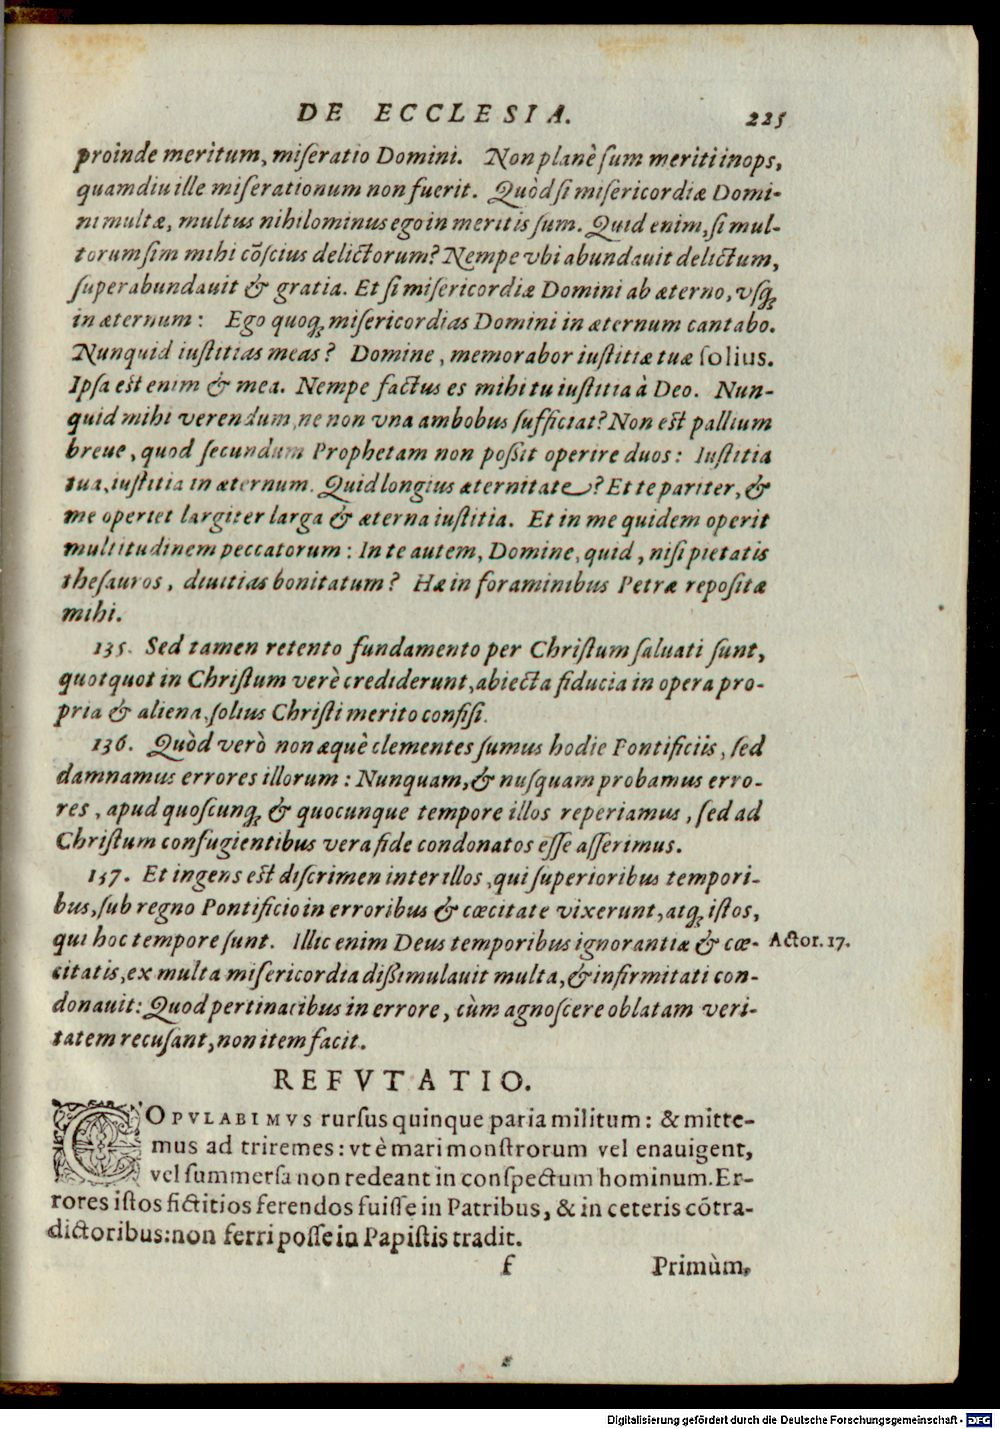 DE ECCLESIA. 225
proinde meritum, miseratio Domini. Non planè sum meriti inops,
quamdiu ille miserationum non fuerit. Quòd si misericordiæ Domi-
ni multæ, multus nihilominus ego in meritis sum. Quid enim, si mul-
torum sim mihi cõscius delictorum? Nempe vbi abundauit delictum,
superabundauit & gratia. Et si misericordiæ Domini ab æterno, vsq́;
in æternum: Ego quoq́; misericordias Domini in æternum cantabo.
Nunquid iustitias meas? Domine, memorabor iustitiæ tuæ solius.
Ipsa est enim & mea. Nempe factus es mihi tu iustitia à Deo. Nun-
quid mihi verendum, ne non vna ambobus sufficiat? Non est pallium
breue, quod secundum Prophetam non possit operire duos: Iustitia
tua, iustitia in æternum. Quid longius æternitate? Et te pariter, &
me operiet largiter larga & æterna iustitia. Et in me quidem operit
multitudinem peccatorum: In te autem, Domine, quid, nisi pietatis
thesauros, diuitias bonitatum? Hæ in foraminibus Petræ repositæ
mihi.
135. Sed tamen retento fundamento per Christum saluati sunt,
quotquot in Christum verè crediderunt, abiecta fiducia in opera pro-
pria & aliena, solius Christi merito confisi.
136. Quòd verò non æquè clementes sumus hodie Pontificiis, sed
damnamus errores illorum: Nunquam, & nusquam probamus erro-
res, apud quoscunq́; & quocunque tempore illos reperiamus, sed ad
Christum confugientibus vera fide condonatos esse asserimus.
137. Et ingens est discrimen inter illos, qui superioribus tempori-
bus, sub regno Pontificio in erroribus & cœcitate vixerunt, atq́; istos,
qui hoc tempore sunt. Illic enim Deus temporibus ignorantiæ & cœ- Actor. 17.
citatis, ex multa misericordia dissimulauit multa, & infirmitati con-
donauit: Quod pertinacibus in errore, cùm agnoscere oblatam veri-
tatem recusant, non item facit.
REFVTATIO.
COPVLABIMVS rursus quinque paria militum: & mitte-
mus ad triremes: vt è mari monstrorum vel enauigent,
vel summersa non redeant in conspectum hominum. Er-
rores istos fictitios ferendos fuisse in Patribus, & in ceteris cõtra-
dictoribus: non ferri posse in Papistis tradit.
f Primùm,
Digitalisierung gefördert durch die Deutsche Forschungsgemeinschaft - DFG